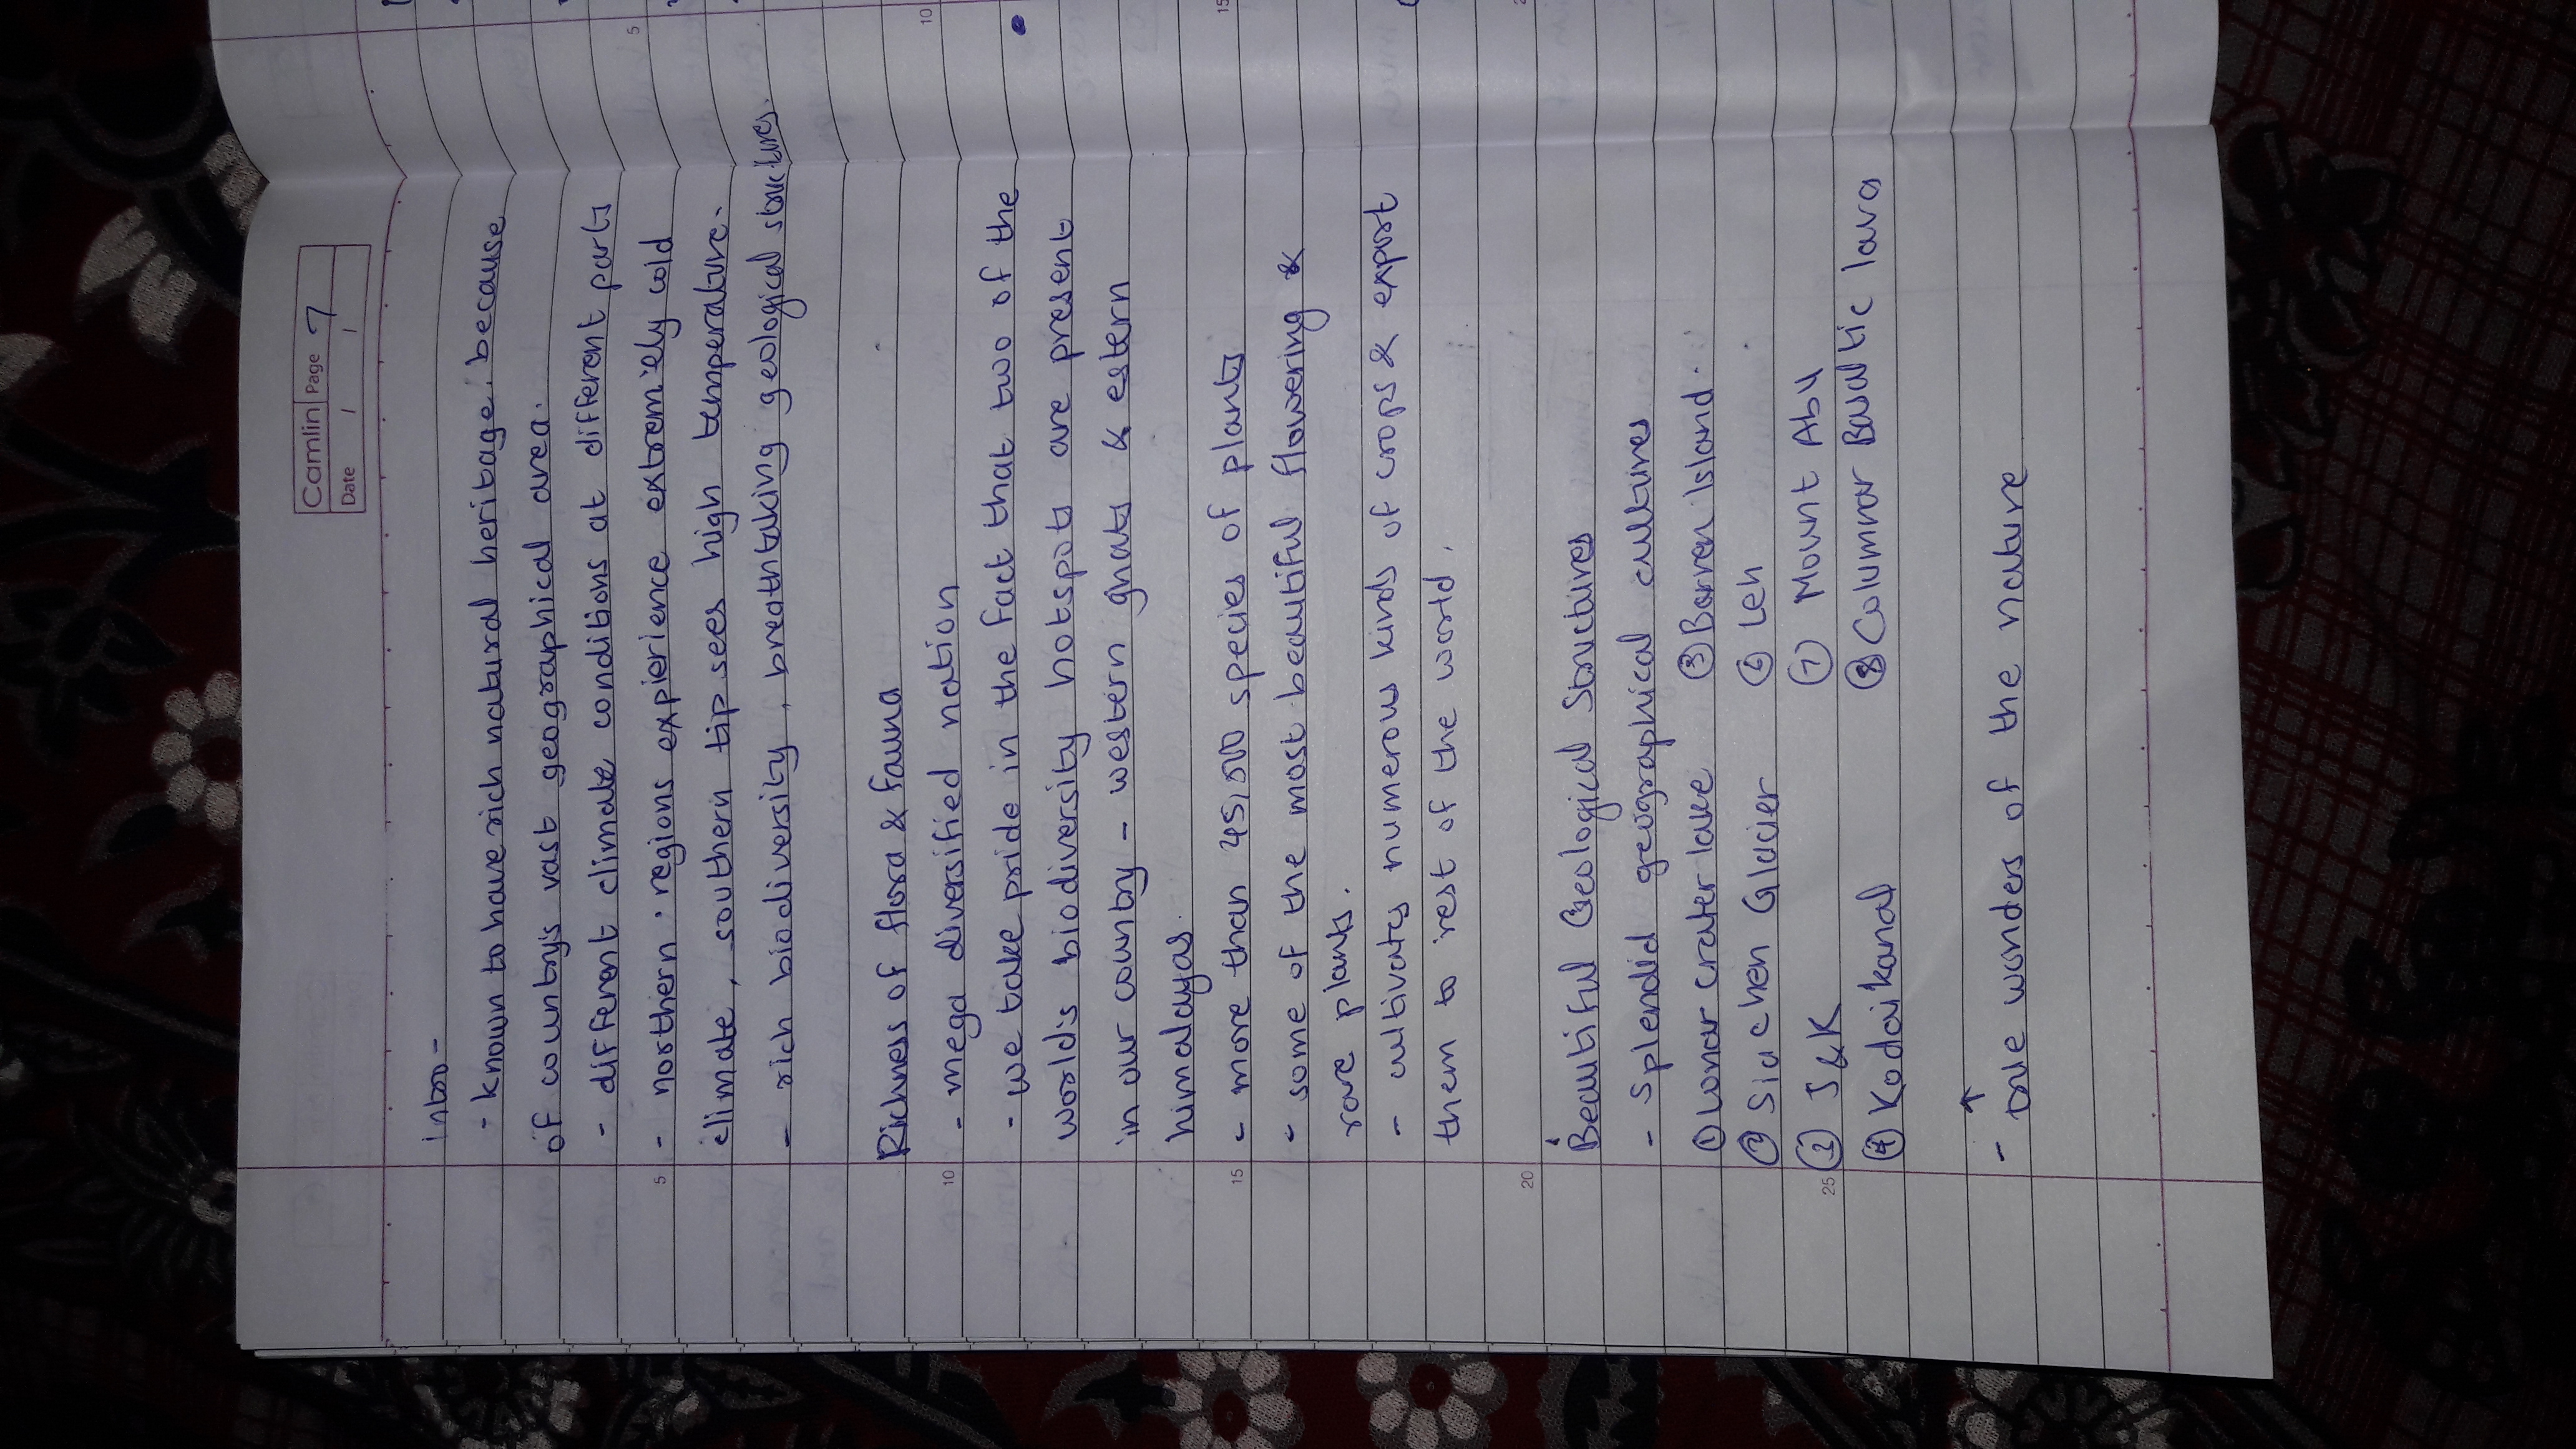 Camlin Page 7
Date / /
intro -
- known to have rich natural heritage. because
of country's vast geographical area.
- different climate conditions at different parts
5 - northern regions expierience extremely cold
climate, southern tip sees high temperature.
- rich biodiversity, breathtaking geological structures.
Richness of flora & fauna
10 - mega diversified nation
- we take pride in the fact that two of the
world's biodiversity hotspots are present
in our country - western ghats & estern
himalayas.
15 - more than 45,000 species of plants
- some of the most beautiful flowering &
rare plants.
- cultivates numerous kinds of crops & export
them to rest of the world.
20
Beautiful Geological Structures
- Splendid geographical cultures
① Lonar crater lake ⑤ Barren Island.
② Siachen Glacier ⑥ Leh
25 ③ J&K ⑦ Mount Abu
④ Kodaikanal ⑧ Columnar Basaltic lava
↑
- true wonders of the nature
5
10
15